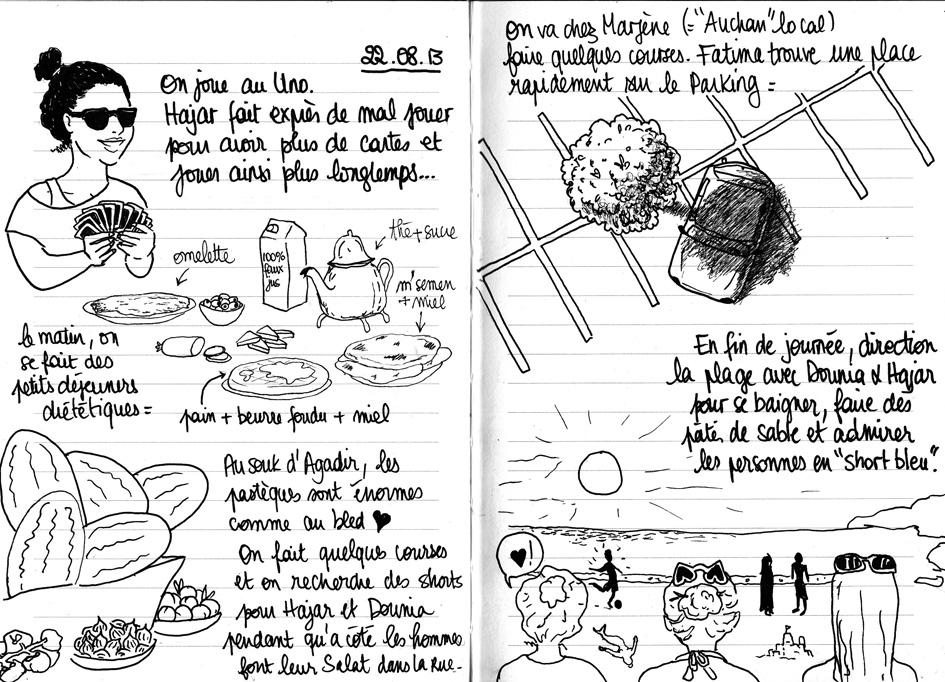 22.08.13
On joue au Uno.
Hajar fait exprès de mal jouer
pour avoir plus de cartes et
jouer ainsi plus longtemps...
omelette
100%
faux
jus
thé + sucre
m'semen
+ miel
le matin, on
se fait des
petits déjeuners
diététiques =
pain + beurre fondu + miel
Au souk d'Agadir, les
pastèques sont énormes
comme au bled ♥
On fait quelques courses
et on recherche des shorts
pour Hajar et Dounia
pendant qu'à côté les hommes
font leur Salat dans la rue.
On va chez Marjène (="Auchan" local)
faire quelques courses. Fatima trouve une place
rapidement sur le Parking =
En fin de journée, direction
la plage avec Dounia & Hajar
pour se baigner, faire des
pâtés de sable et admirer
les personnes en "short bleu".
♥!